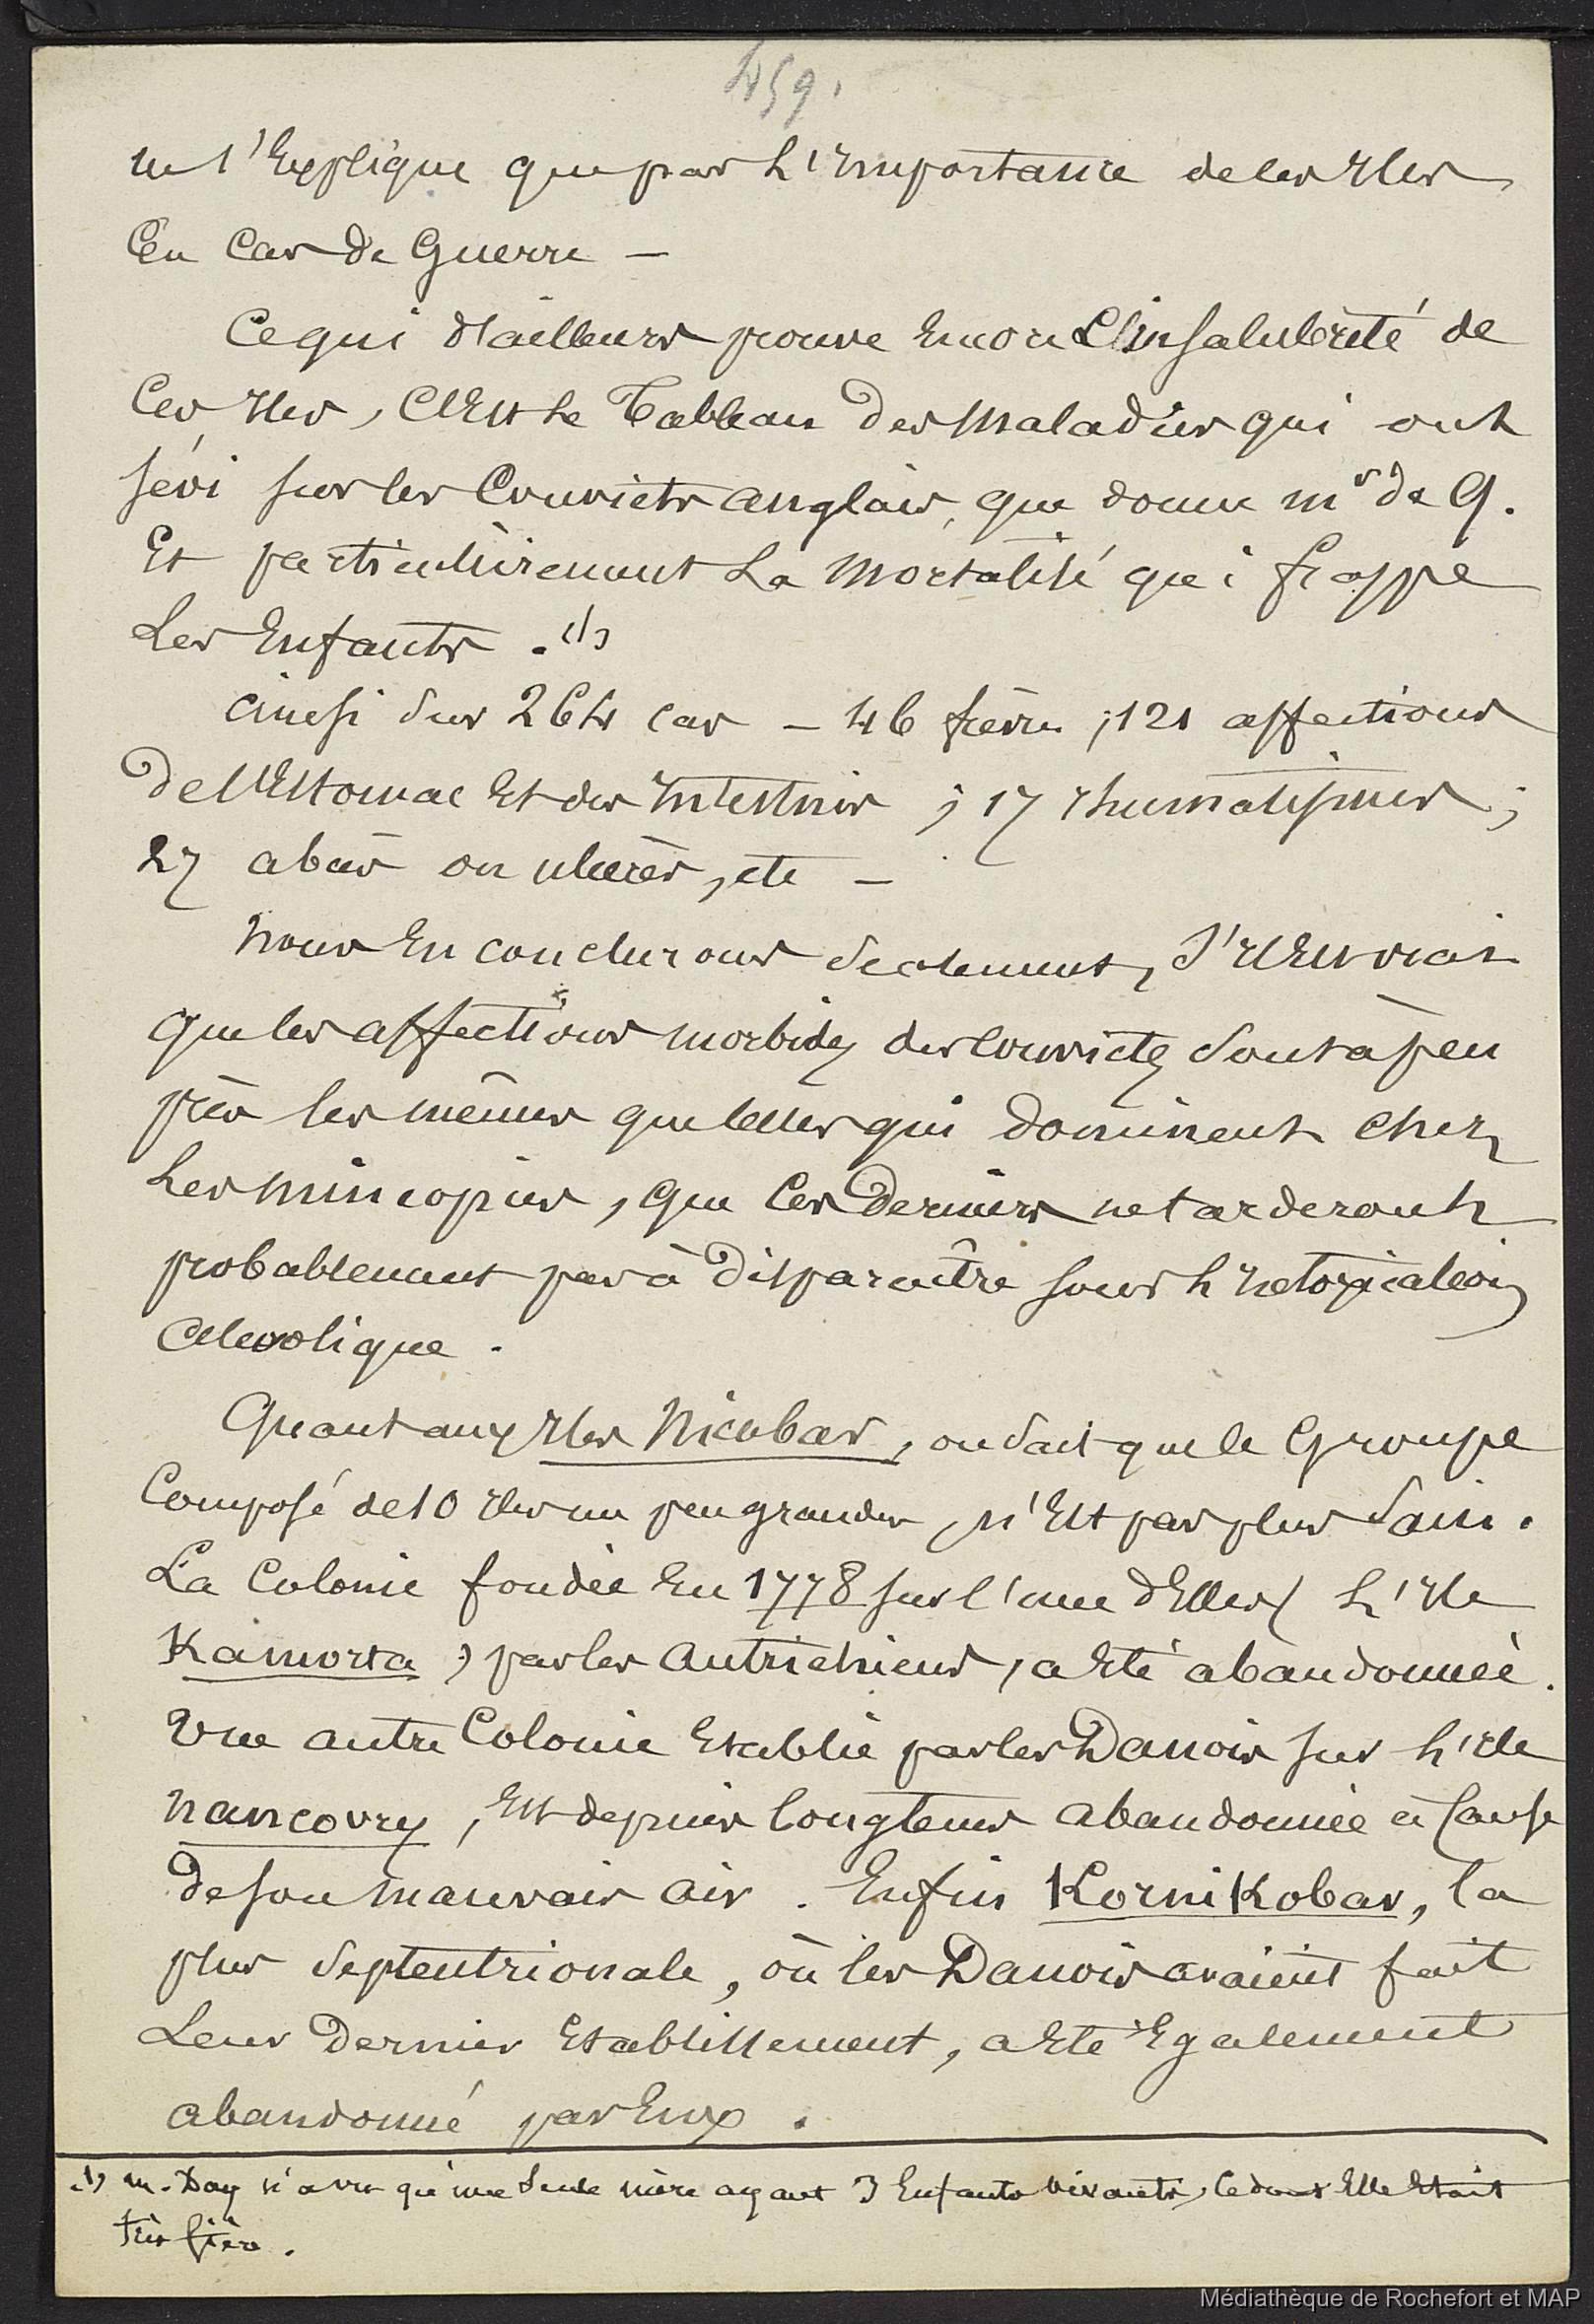 459.
ne s'Explique que par L'Importance de ces Iles
En Cas de Guerre —
Ce qui d'ailleurs prouve Encore L'insalubrité de
Ces Iles, C'Est Le Tableau Des Maladies qui ont
sévi sur les Convicts Anglais, que donne Mr de Q.
Et particulièrement La Mortalité qui frappe
Les Enfants . (1)
ainsi sur 264 cas — 46 fièvres ; 121 affections
De l'Estomac Et des Intestins ; 17 rhumatismes ;
27 abcès ou ulcères, etc —
Nous En conclurons seulement, S'Il Est vrai
que les affections morbides des Convicts sont à peu
près les mêmes que celles qui dominent chez
Les Mincopies, que Ces Derniers ne tarderont
probablement pas à Disparaître sous L'Intoxication
alcoolique .
Quant aux Iles Nicobar, on sait que le Groupe
Composé de 10 Iles un peu grandes, n'Est pas plus sain.
La Colonie fondée En 1778 sur l'une d'Elles ( L'Ile
Kamorta ) par les Autrichiens, a Eté abandonnée.
Une autre Colonie Etablie par les Danois sur L'Ile
Nancovry, Est depuis longtems abandonnée à Cause
De son mauvais air . Enfin Kornikobar, la
plus septentrionale, où les Danois avaient fait
Leur Dernier Etablissement, a Eté Egalement
abandonné par Eux .
(1) M. Day n'a vu qu'une seule mère ayant 3 Enfants vivants, Ce dont Elle Etait
très fière .
Médiathèque de Rochefort et MAP